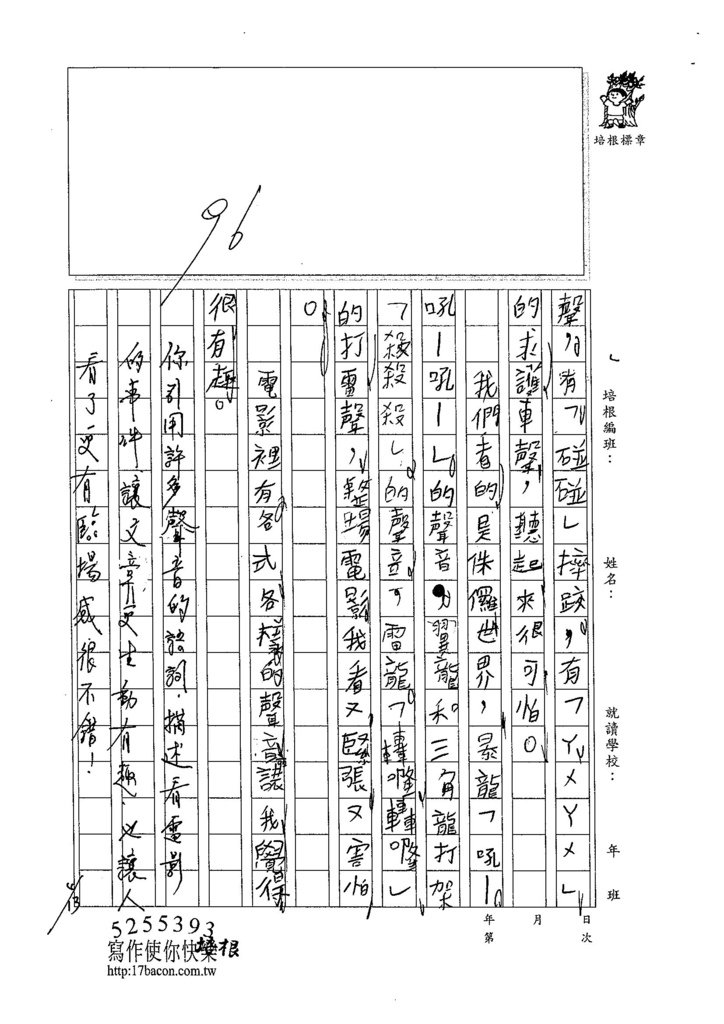 培根標章
96
培根編班：
姓名：
就讀學校：
年 班
聲，有「碰碰」摔跤，有「ㄚㄨㄚㄨ」
的求護車聲，聽起來很可怕。
我們看的是侏儸世界，暴龍「吼—
吼—吼—」的聲音，翼龍和三角龍打架
「殺殺殺」的聲音，雷龍「轟隆轟隆」
的打雷聲，整場電影我看又緊張又害怕
。
電影裡有各式各樣的聲音讓我覺得
很有趣。
你引用許多聲音的語詞，描述看電影
的事件，讓文章更生動有趣，必讓人
看了更有臨場感很不錯！
4/13
年 月 日
第 次
5255393
培根
寫作使你快樂
http:17bacon.com.tw